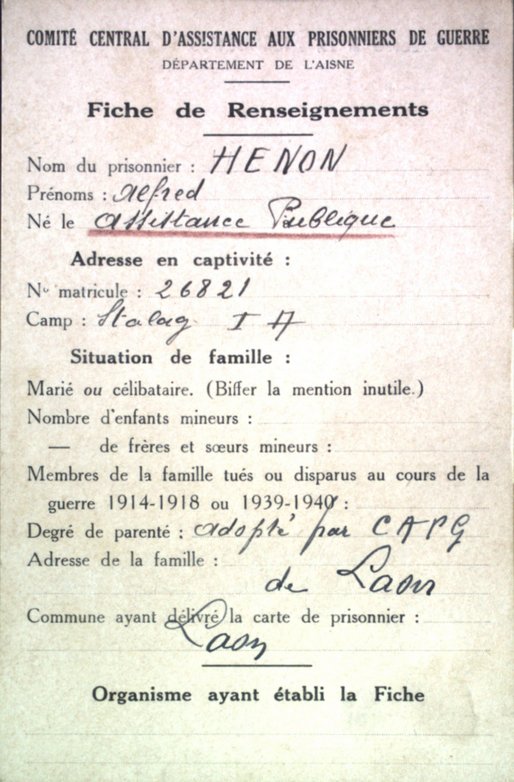 COMITÉ CENTRAL D'ASSISTANCE AUX PRISONNIERS DE GUERRE
DÉPARTEMENT DE L'AISNE
Fiche de Renseignements
Nom du prisonnier : HENON
Prénoms : Alfred
Né le Assistance Publique
Adresse en captivité :
No matricule : 26821
Camp : Stalag I A
Situation de famille :
Marié ou célibataire. (Biffer la mention inutile.)
Nombre d'enfants mineurs :
— de frères et sœurs mineurs :
Membres de la famille tués ou disparus au cours de la
guerre 1914-1918 ou 1939-1940 :
Degré de parenté : adopté par CAPG
Adresse de la famille :
de Laon
Commune ayant délivré la carte de prisonnier :
Laon
Organisme ayant établi la Fiche